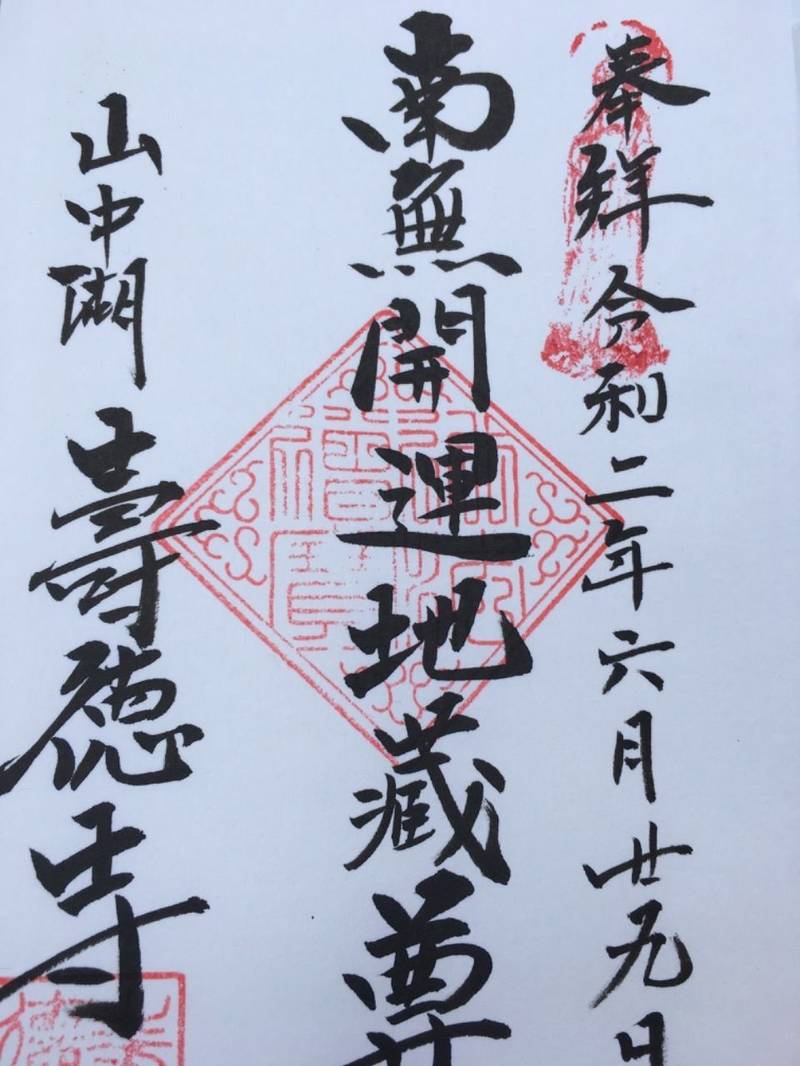 奉拜 令和二年六月廿九日
南無開運地蔵尊
山中湖 壽德寺